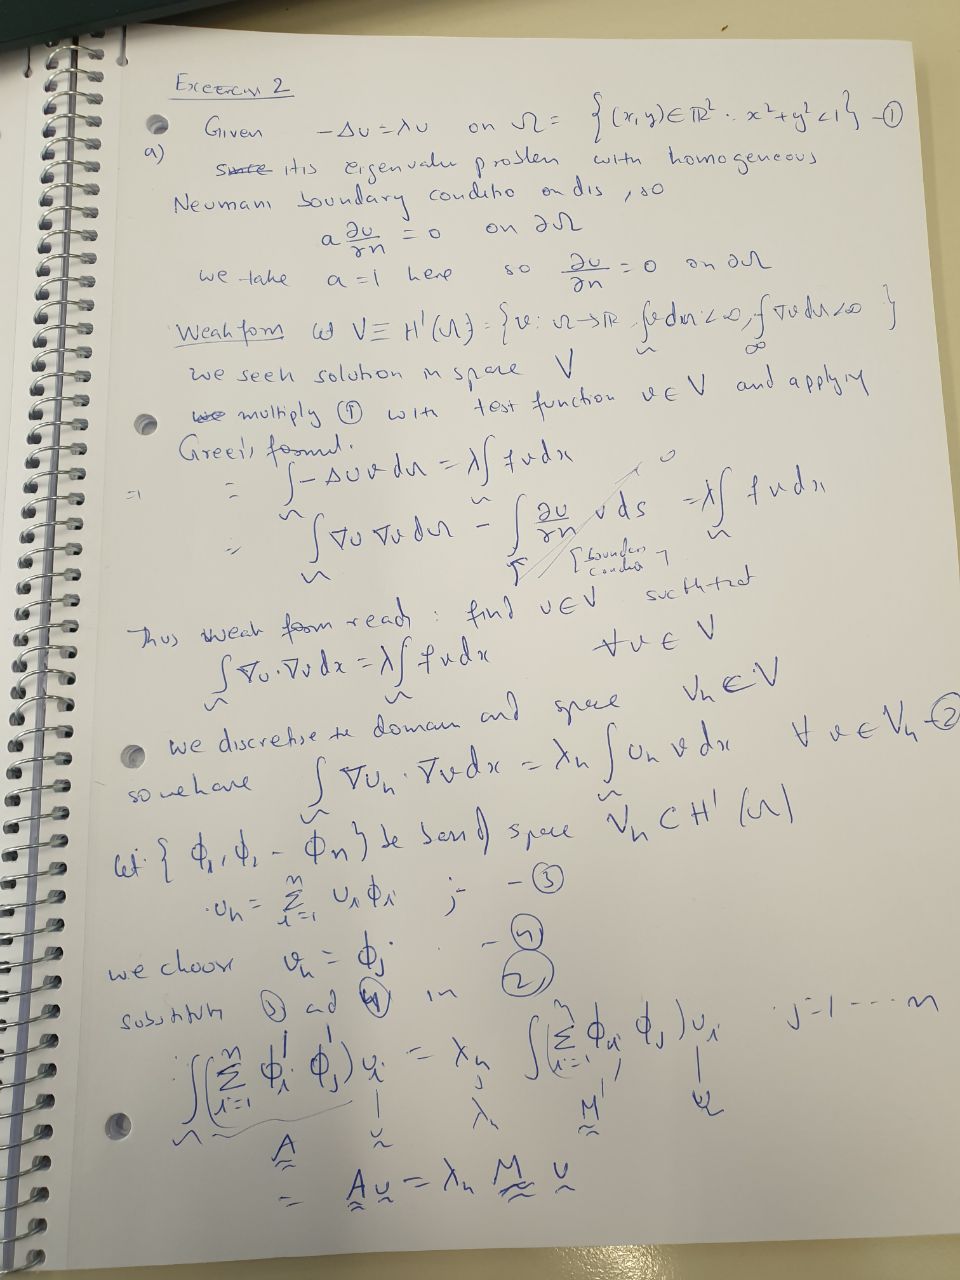 Exercise 2
a) Given -Δu = λu on Ω = {(x,y) ∈ ℝ² : x²+y² < 1} -①
since it is eigenvalue problem with homogeneous
Neumann boundary conditio on dis, so
a ∂u/∂n = 0 on ∂Ω
we take a = 1 here so ∂u/∂n = 0 on ∂Ω
Weak form let V ≡ H¹(Ω) = {v: Ω → ℝ, ∫v dx < ∞, ∫∇v dx < ∞}
we seek solution in space V
we multiply ① with test function v ∈ V and applying
Green's formul.
= ∫-Δu v dx = λ∫ f v dx
= ∫∇u ∇v dx - ∫ ∂u/∂n v ds = λ∫ f v dx
0
[boundary condition]
Thus weak form reads : find u ∈ V such that
∫∇u·∇v dx = λ∫ f v dx ∀ v ∈ V
we discretise the domain and space Vh ∈ V
so we have ∫∇uh·∇v dx = λh ∫uh v dx ∀ v ∈ Vh -②
let {ϕ₁, ϕ₂ - ϕn} be of space Vh ⊂ H¹(Ω)
uh = Σ_{i=1}^{n} ui ϕi ; -③
we choose vh = ϕj -④
substitute ③ ad ④ in ②
∫(Σ_{i=1}^{n} ϕi' ϕj') ui = λh ∫(Σ_{i=1}^{n} ϕi ϕj) ui j=1 --- n
A u λ M u
= A u = λh M u